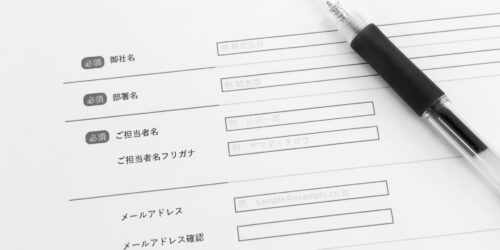 必須 御社名
例 株式会社
必須 部署名
例 開発部
必須 ご担当者名
例 山田一郎
ご担当者名フリガナ
例 ヤマダイチロウ
メールアドレス
例 sample@example.co.jp
メールアドレス確認